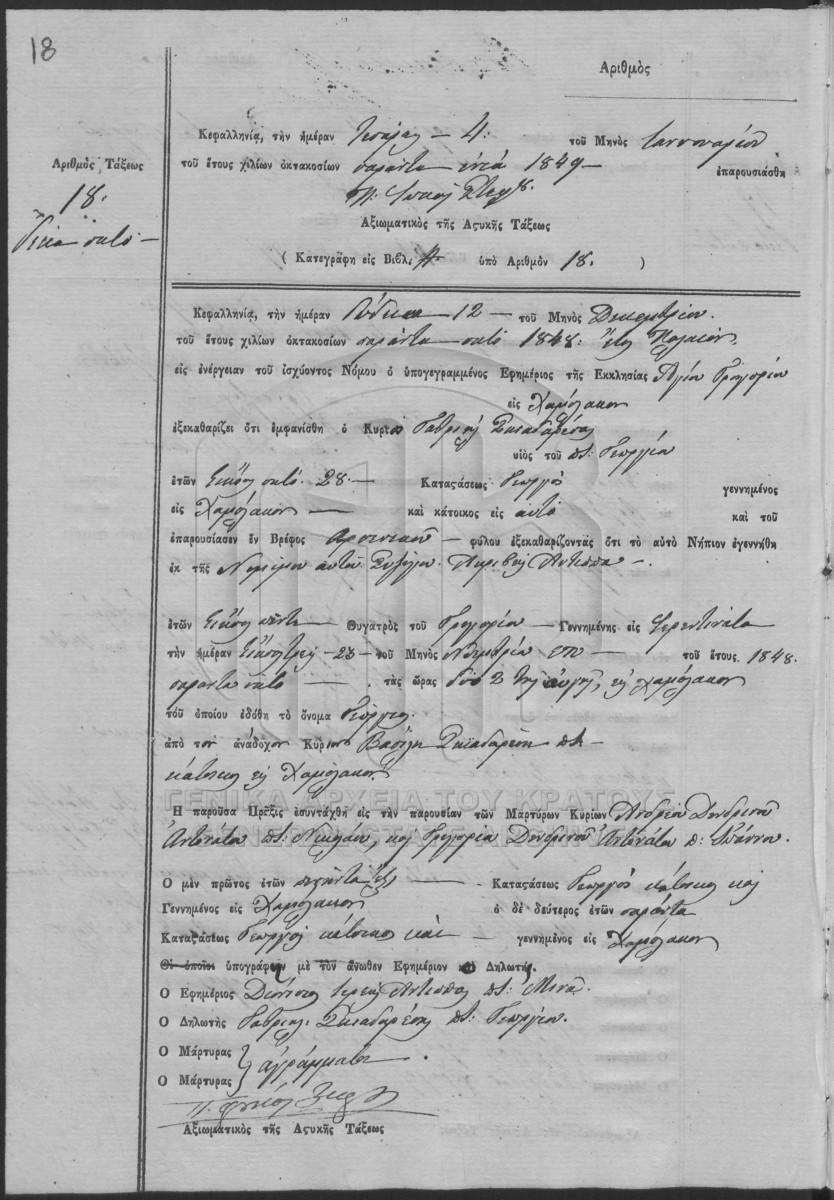 18
Ἀριθμὸς
Κεφαλληνίᾳ, τὴν ἡμέραν 4: τοῦ Μηνὸς Ἰαννουαρίου
Ἀριθμὸς Τάξεως
τοῦ ἔτους χιλίων ὀκτακοσίων σαράντα ἐνέα 1849 — ἐπαρουσιάσθη
18.
Δέκα οκτό —
Ἀξιωματικὸς τῆς Ἀςυκῆς Τάξεως
( Κατεγράφη εἰς Βιβλ. ὑπὸ Ἀριθμὸν 18. )
Κεφαλληνίᾳ, τὴν ἡμέραν Δόδεκα 12 — τοῦ Μηνὸς Δεκεμβρίου.
τοῦ ἔτους χιλίων ὀκτακοσίων σαράντα οκτό 1848: Παλαιόν.
εἰς ἐνέργειαν τοῦ ἰσχύοντος Νόμου ὁ ὑπογεγραμμένος Ἐφημέριος τῆς Ἐκκλησίας Ἁγίου Γρηγορίου
εἰς Χαμόλακον
ἐξεκαθαρίζει ὅτι ἐμφανίσθη ὁ Κυριος Γαβριήλ Σκιαδαρέσης
υἱὸς τοῦ Γεωργίου
ἐτῶν Εἴκοσι οκτό. 28 — Καταςάσεως Γεωργός γεννημένος
εἰς Χαμόλακον — καὶ κάτοικος εἰς αυτό καὶ τοῦ
ἐπαρουσίασεν ἓν Βρέφος Αρσενικοῦ — φύλου ἐξεκαθαρίζοντας ὅτι τὸ αὐτὸ Νήπιον ἐγεννήθη
ἐκ τῆς Νομίμου αυτοῦ Συζύγου. —
ἐτῶν Εικοσι πέντε — Θυγατρὸς τοῦ Γρηγορίου — Γεννημένης εἰς
τὴν ἡμέραν Εικοσιτρεῖς — 23 — τοῦ Μηνὸς Νοεμβρίου — τοῦ ἔτους 1848.
σαράντα οκτό — τὰς ὥρας δύο 2 της αυγής, εις Χαμόλακον
τοῦ ὁποίου ἐδόθη τὸ ὄνομα Γεώργιος
ἀπὸ τὸν ἀνάδοχον Κύριον Βασίλη Σκιαδαρέση —
κάτοικος εις Χαμόλακον.
ΓΕΝΙΚΑ ΑΡΧΕΙΑ ΤΟΥ ΚΡΑΤΟΥΣ
Ἡ παροῦσα Πρᾶξις ἐσυντάχθη εἰς τὴν παρουσίαν τῶν Μαρτύρων Κυρίων Ανδρέα Δενδρινοῦ
Αντονάτο Νικολάου, και Γρηγορίου Δενδρινοῦ Αντονάτο
Ὁ μὲν πρῶτος ἐτῶν — Καταςάσεως Γεωργός κάτοικος και
Γεννημένος εἰς Χαμόλακον ὁ δὲ δεύτερος ἐτῶν σαράντα
Καταςάσεως Γεωργός κάτοικος και — γεννημένος εἰς Χαμόλακον
Οἱ ὁποῖοι ὑπογράφω μὲ τὸν ἄνωθεν Ἐφημέριον Δηλωτής.
Ὁ Ἐφημέριος Διόνισιος ιερεύς Μηνᾶ.
Ὁ Δηλωτὴς Γαβριηλ: Σκιαδαρέσης Γεωργίου.
Ὁ Μάρτυρας
Ὁ Μάρτυρας } αγράμματοι.
Ἀξιωματικὸς τῆς Ἀςυκῆς Τάξεως